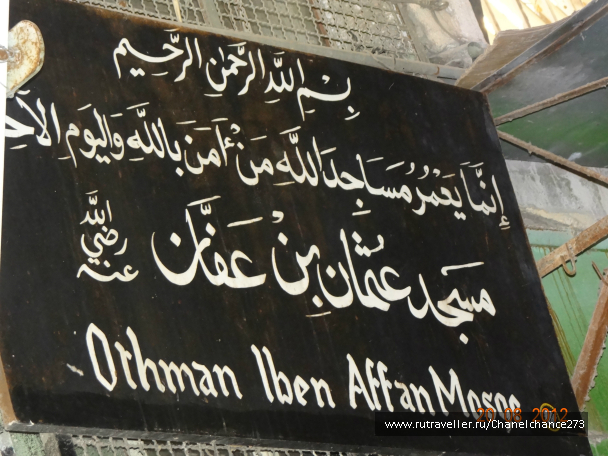 بِسْمِ اللَّهِ الرَّحْمَنِ الرَّحِيمِ
إِنَّمَا يَعْمُرُ مَسَاجِدَ اللَّهِ مَنْ ءَامَنَ بِاللَّهِ وَالْيَومِ الآخِ
مسجد عثمان بن عفان رضي الله عنه
Othman Iben Affan Mosqe
20.08.2012
www.rutraveller.ru/Chanelchance273